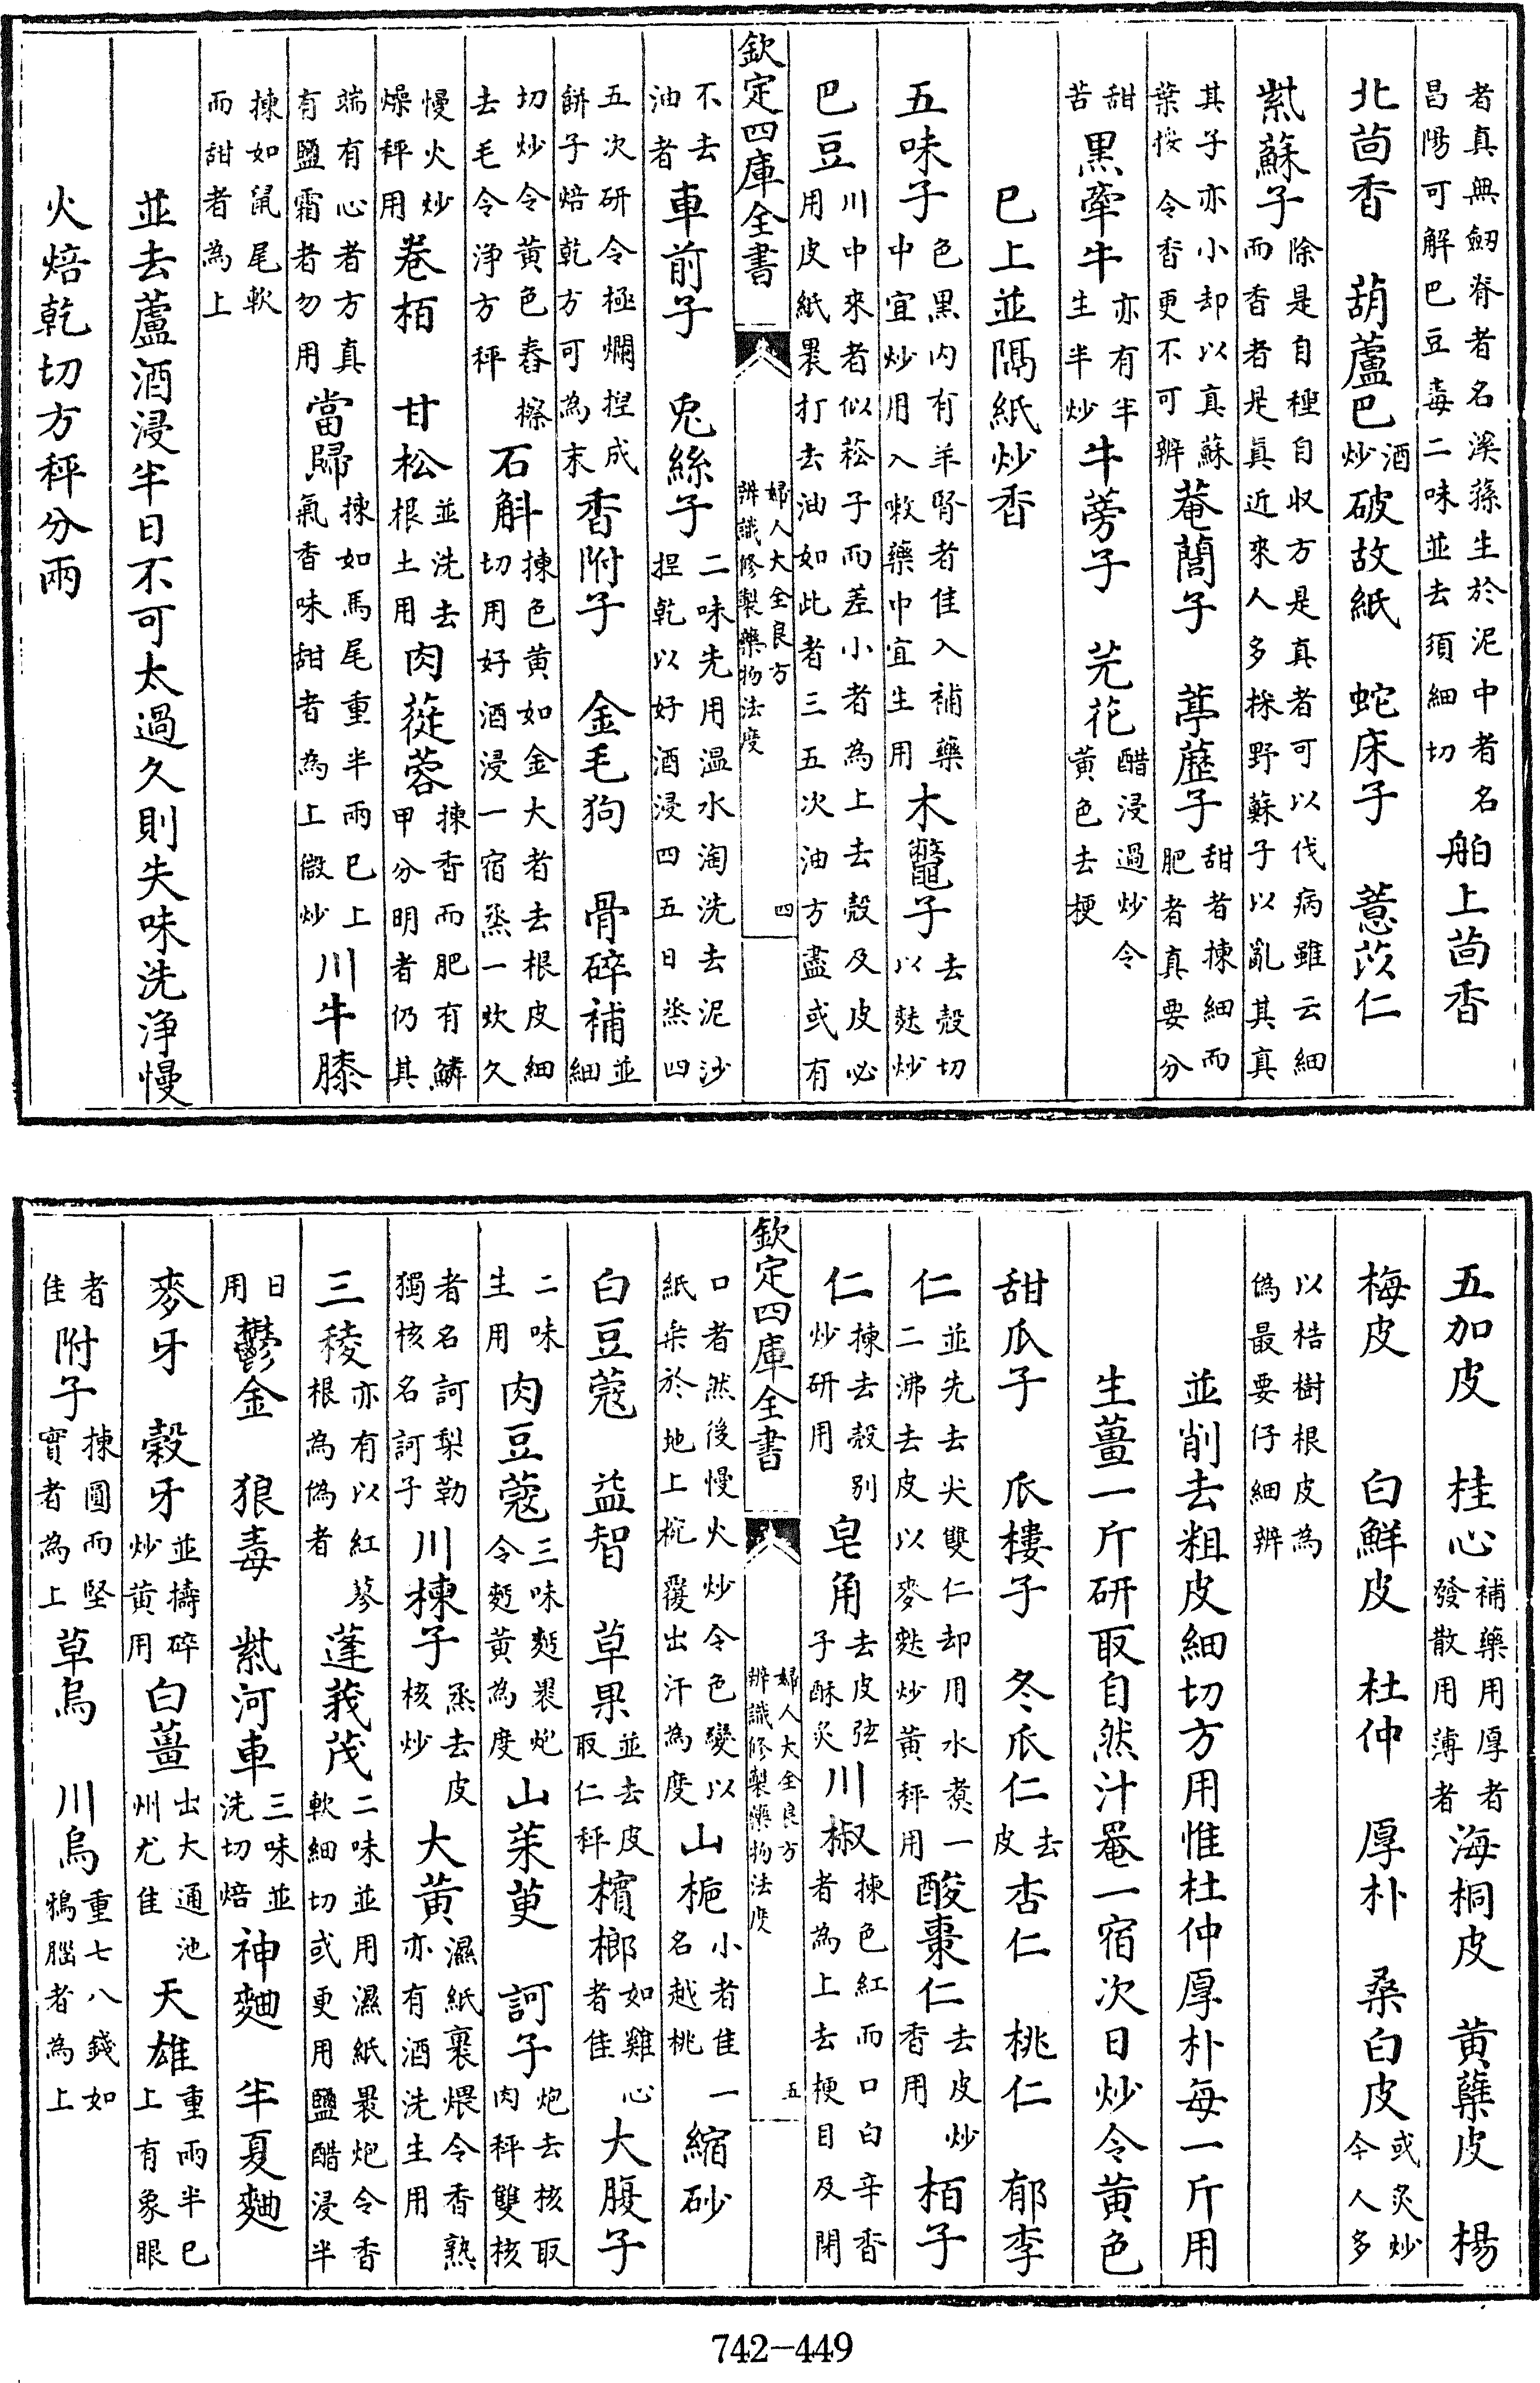 者真無劒脊者名溪蓀生於泥中者名昌陽可解巴豆毒二味並去須細切舶上茴香
北茴香　葫蘆巴酒炒破故紙　蛇床子　薏苡仁
紫蘇子除是自種自收方是真者可以伐病雖云細而香者是真近來人多採野蘇子以亂其真
其子亦小却以真蘇葉挼令香更不可辨菴䕡子　葶藶子甜者揀細而肥者真要分
甜苦黑牽牛亦有半生半炒牛蒡子　芫花醋浸過炒令黄色去梗
巳上並隔紙炒香
五味子色黑内有羊腎者佳入補藥中宜炒用入嗽藥中宜生用木鼈子去殻切以麩炒
巴豆川中來者似菘子而差小者為上去殻及皮必用皮紙褁打去油如此者三五次油方盡或有
欽定四庫全書
婦人大全良方
辨識修製藥物法度
四
不去油者車前子　兎絲子二味先用温水淘洗去泥沙捏乾以好酒浸四五日烝四
五次研令極爛捏成餅子焙乾方可為末香附子　金毛狗　骨碎補並細
切炒令黄色舂擦去毛令浄方秤石斛揀色黄如金大者去根皮細切用好酒浸一宿烝一炊久
慢火炒燥秤用巻栢　甘松並洗去根土用肉蓯蓉揀香而肥有鱗甲分明者仍其
端有心者方真有鹽霜者勿用當歸揀如馬尾重半兩巳上氣香味甜者為上微炒川牛膝
揀如鼠尾軟而甜者為上
並去蘆酒浸半日不可太過久則失味洗浄慢
火焙乾切方秤分兩
五加皮　桂心補藥用厚者發散用薄者海桐皮　黄蘗皮　楊
梅皮　白鮮皮　杜仲　厚朴　桑白皮或炙炒今人多
以桔樹根皮為偽最要仔細辨
並削去粗皮細切方用惟杜仲厚朴每一斤用
生薑一斤研取自然汁罨一宿次日炒令黄色
甜瓜子　瓜樓子　冬瓜仁去皮杏仁　桃仁　郁李
仁並先去尖雙仁却用水煑一二沸去皮以麥麩炒黄秤用酸棗仁去皮炒香用栢子
仁揀去殻别炒研用皂角去皮弦子酥炙川椒揀色紅而口白辛香者為上去梗目及閉
欽定四庫全書
婦人大全良方
辨識修製藥物法度
五
口者然後慢火炒令色變以紙朵於地上椀覆出汗為度山梔小者佳一名越桃縮砂
白豆蔻　益智　草果並去皮取仁秤檳榔如雞心者佳大腹子
二味生用肉豆蔻三味麪褁炮令麪黄為度山茱萸　訶子炮去核取肉秤雙核
者名訶梨勒獨核名訶子川楝子烝去皮核炒大黄濕紙裹煨令香熟亦有酒洗生用
三稜亦有以紅蓼根為偽者蓬莪茂二味並用濕紙褁炮令香軟細切或更用鹽醋浸半
日用鬱金　狼毒　紫河車三味並洗切焙神麯　半夏麯
麥牙　穀牙並擣碎炒黄用白薑出大通池州尤佳天雄重兩半巳上有象眼
者佳附子揀圓而堅實者為上草烏　川烏重七八錢如鴉腦者為上
742-449